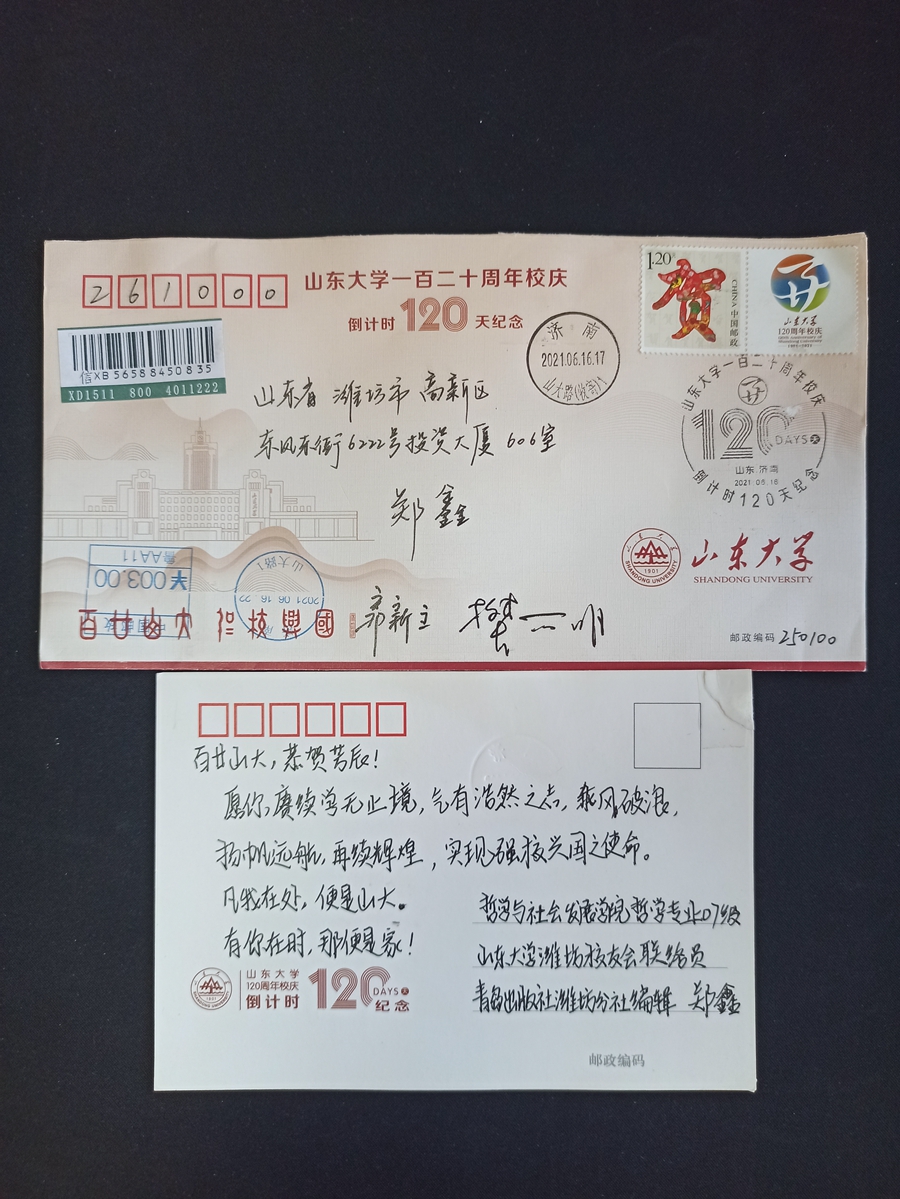 261000
山东大学一百二十周年校庆
倒计时 120 天纪念
1.20
CHINA 中国邮政
山东大学
120周年校庆
信XB56588450835
XD1511 800 4011222
济南
2021.06.16.17
山大路(收寄)1
山东大学一百二十周年校庆
120 DAYS天
山东.济南
2021.06.16
倒计时120天纪念
山东省 潍坊市 高新区
东风东街6222号投资大厦 606室
郑鑫
鲁AA11
¥003.00
中国邮政
山大路1
2021.06.16.22
1901
SHANDONG UNIVERSITY
山东大学
SHANDONG UNIVERSITY
百廿山大 强校兴国
邮政编码 250100
百廿山大，恭贺芳辰！
愿你，赓续学无止境，气有浩然之志，乘风破浪，
扬帆远航，再续辉煌，实现强校兴国之使命。
凡我在处，便是山大。
有你在时，那便是家！
哲学与社会发展学院哲学专业07级
山东大学潍坊校友会联络员
青岛出版社潍坊分社编辑 郑鑫
山东大学
120周年校庆
倒计时 120 DAYS天 纪念
邮政编码